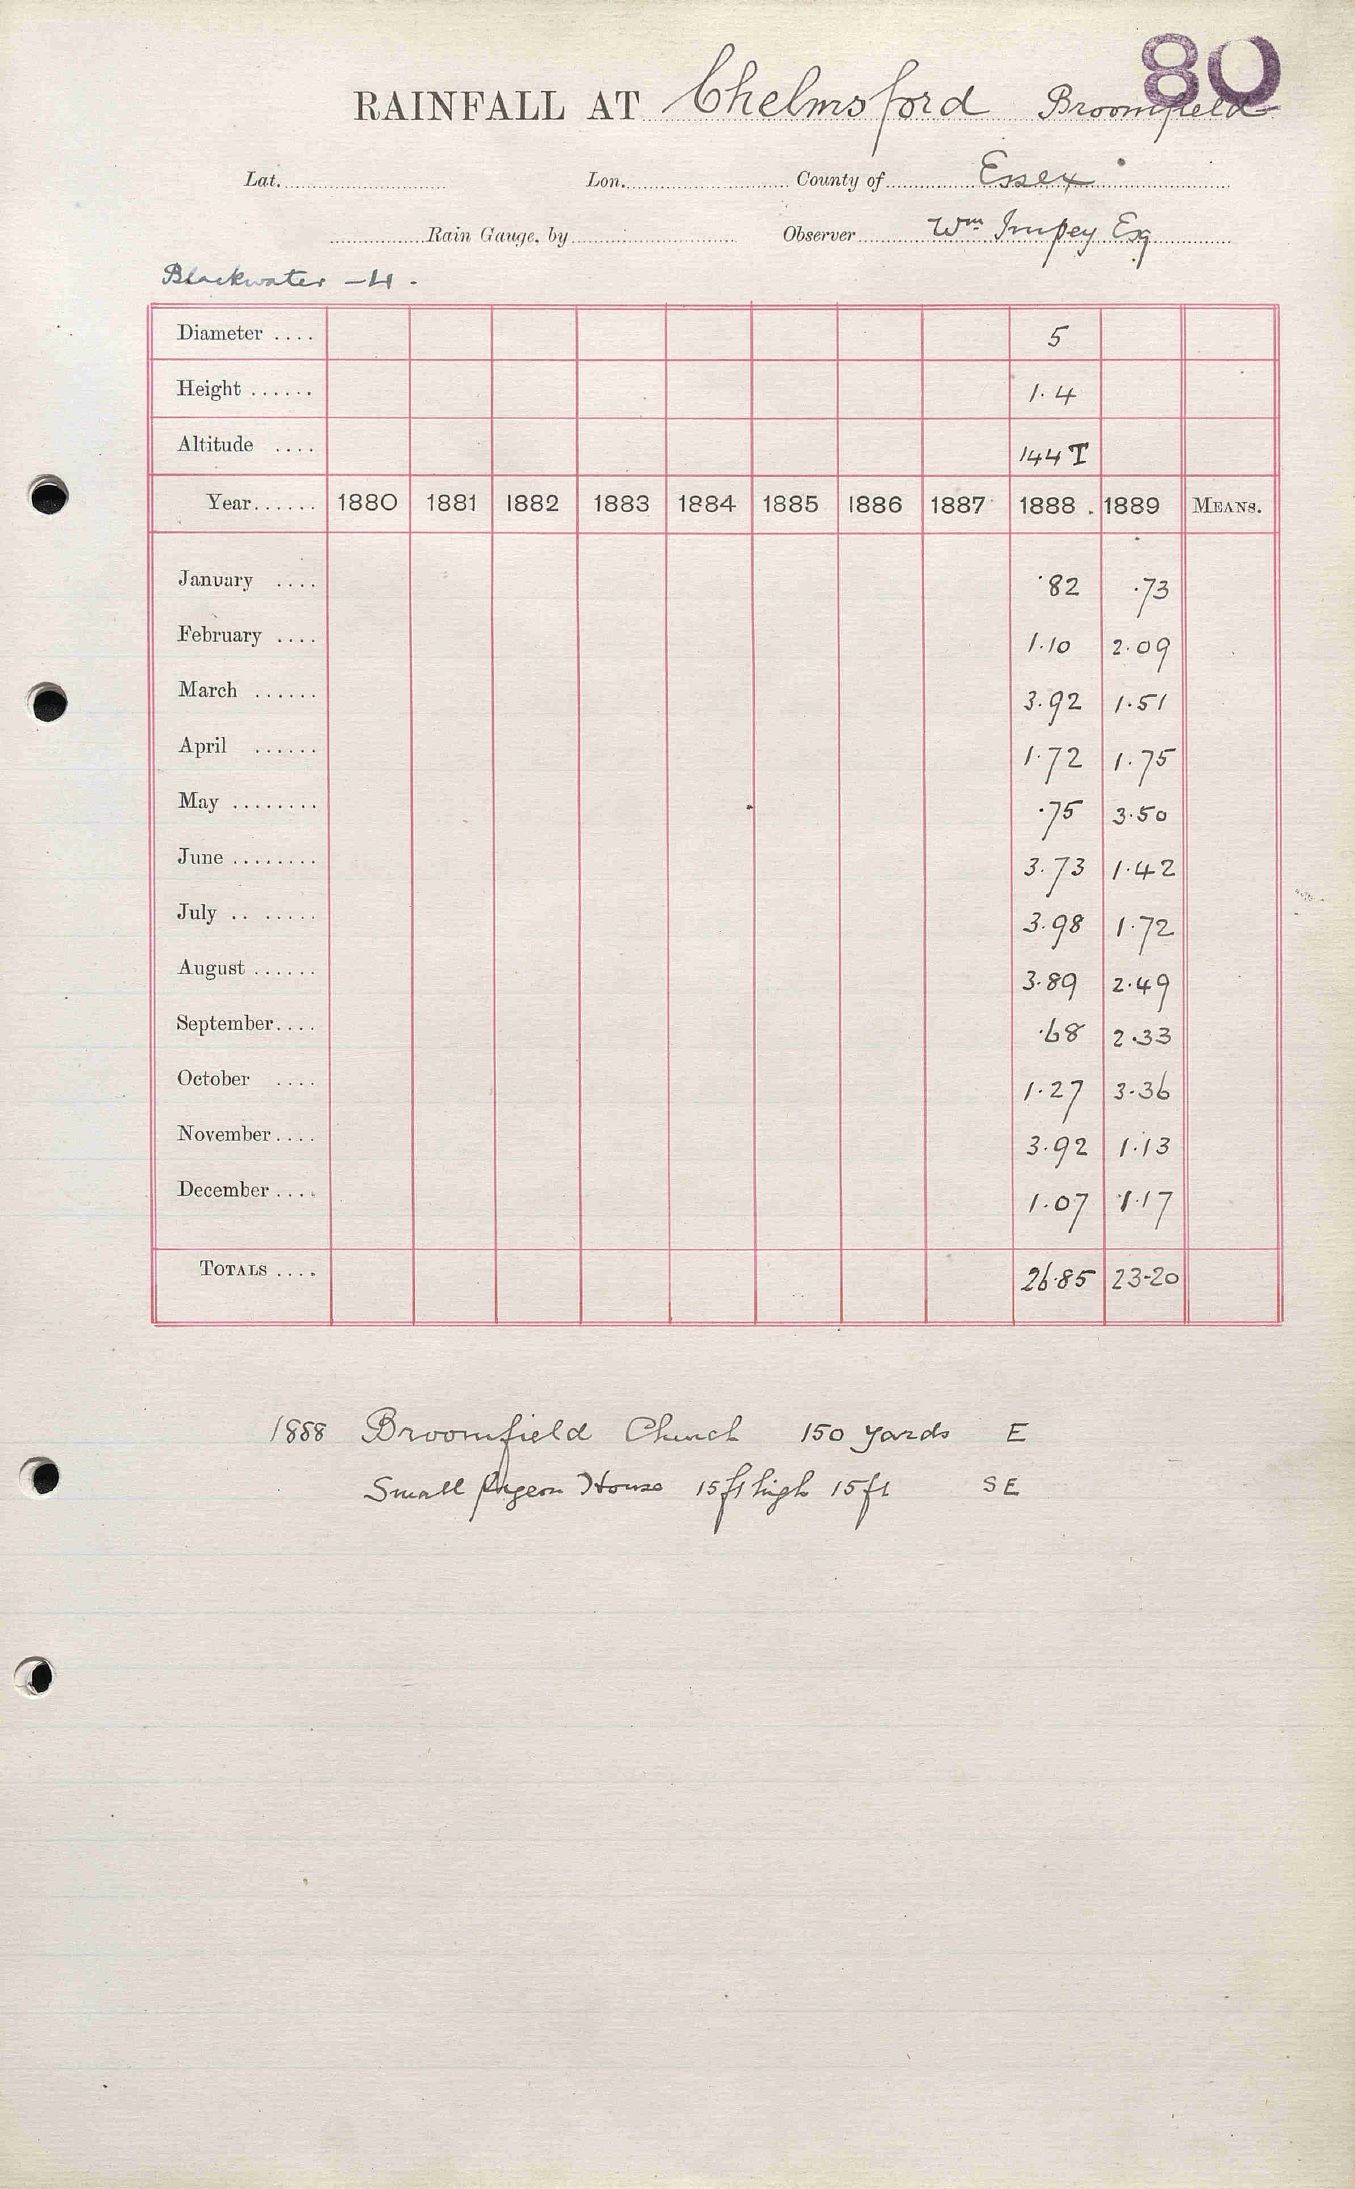 80
RAINFALL AT Chelmsford Broomfield
Lat. Lon. County of Essex
Rain Gauge, by Observer Wm Impey Esq
Blackwater - 4.
Diameter .... 5
Height ...... 1.4
Altitude .... 144 T
Year...... 1880 1881 1882 1883 1884 1885 1886 1887 1888 1889 MEANS.
January .... .82 .73
February .... 1.10 2.09
March ...... 3.92 1.51
April ...... 1.72 1.75
May ........ .75 3.50
June ........ 3.73 1.42
July .. ...... 3.98 1.72
August ...... 3.89 2.49
September.... .68 2.33
October .... 1.27 3.36
November.... 3.92 1.13
December .... 1.07 1.17
TOTALS .... 26.85 23.20
1888 Broomfield Church 150 yards E
Small pigeon House 15ft high 15ft SE